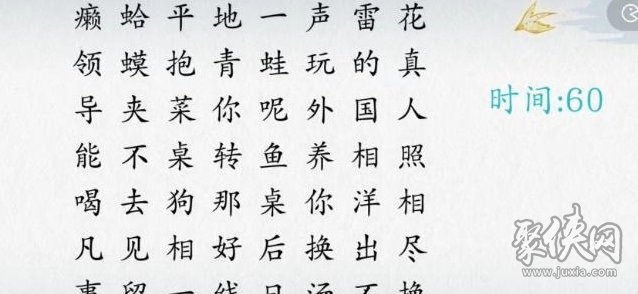 癞蛤平地一声雷花
领蟆抱青蛙玩的真
导夹菜你呢外国人
能不桌转鱼养相照
喝去狗那桌你洋相
凡见相好后换出尽
事留一线日汤不换
时间:60
聚侠网
www.juxia.com